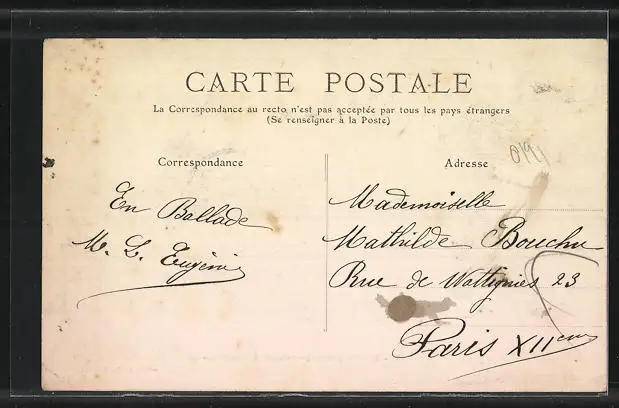 CARTE POSTALE
La Correspondance au recto n'est pas acceptée par tous les pays étrangers
(Se renseigner à la Poste)
Correspondance
Adresse
En Ballade
M. L. Eugéni
Mademoiselle
Mathilde Bouchu
Rue de Wattignies 23
Paris XIIeme